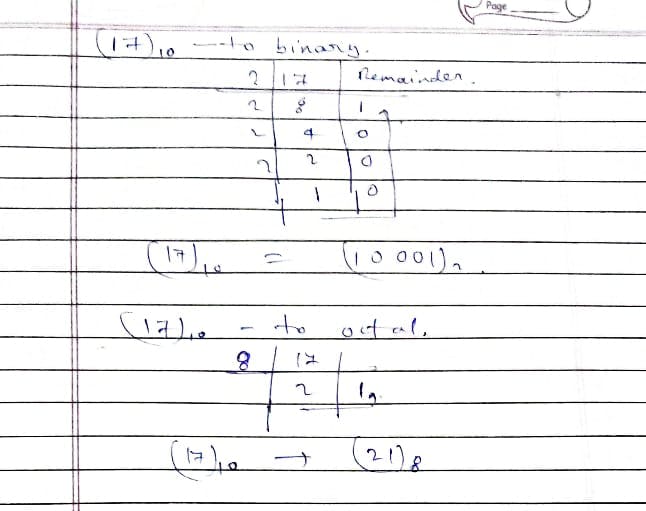 Page
(17)₁₀ — to binary.
2 | 17 | Remainder.
2 | 8 | 1
2 | 4 | 0
2 | 2 | 0
1 | 0
(17)₁₀ = (10001)₂.
(17)₁₀ - to octal.
8 | 17 |
2 | 1
(17)₁₀ → (21)₈